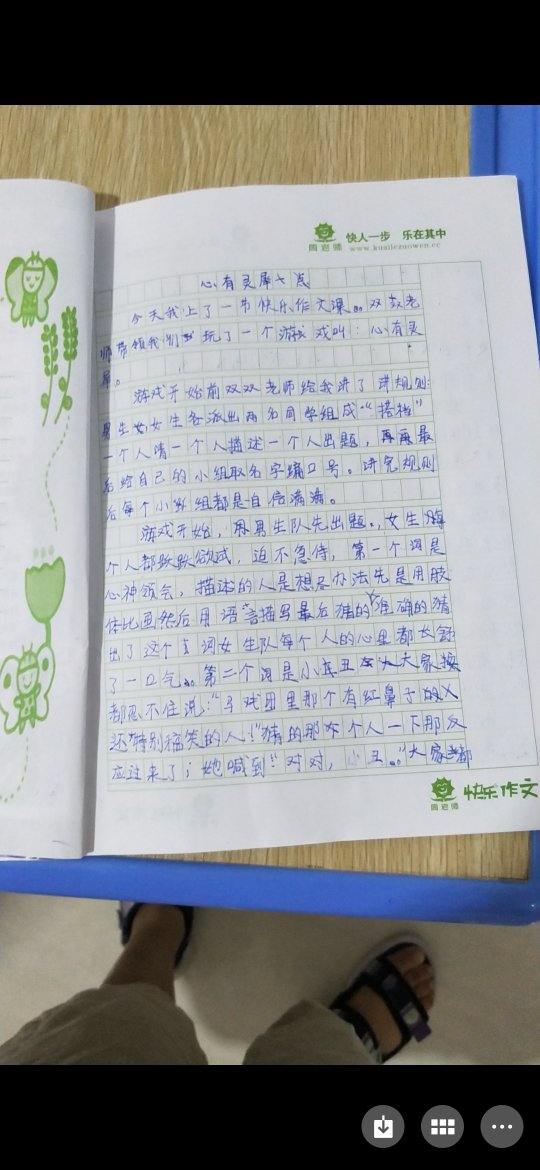 周老师 快人一步 乐在其中
www.kuailezuowen.cc
心有灵犀一点
今天我上了一节快乐作文课。双双老
师带领我们玩了一个游戏叫:心有灵
犀。
游戏开始前双双老师给我讲了讲规则:
男生女女生各派出两名同学组成“搭档”
一个人猜一个人描述一个人出题,再再最
后给自己的小组取名字编口号。讲究规则
后每个小组都是自信满满。
游戏开始,男生队先出题,女生
个人都跃跃欲试,迫不急侍,第一个词是
心神领会,描述的人是想尽办法先是用肢
体比画然后用语言描写最后猜的准确的猜
出了这个词女生队每个人的心里都长舒
了一口气。第二个词是小丑大家
都忍不住说:“马戏团里那个有红鼻子的人
还特别搞笑的人!”猜的那个人一下那反
应过来了;她喊到“对对,小丑。”大家都
周老师 快乐作文